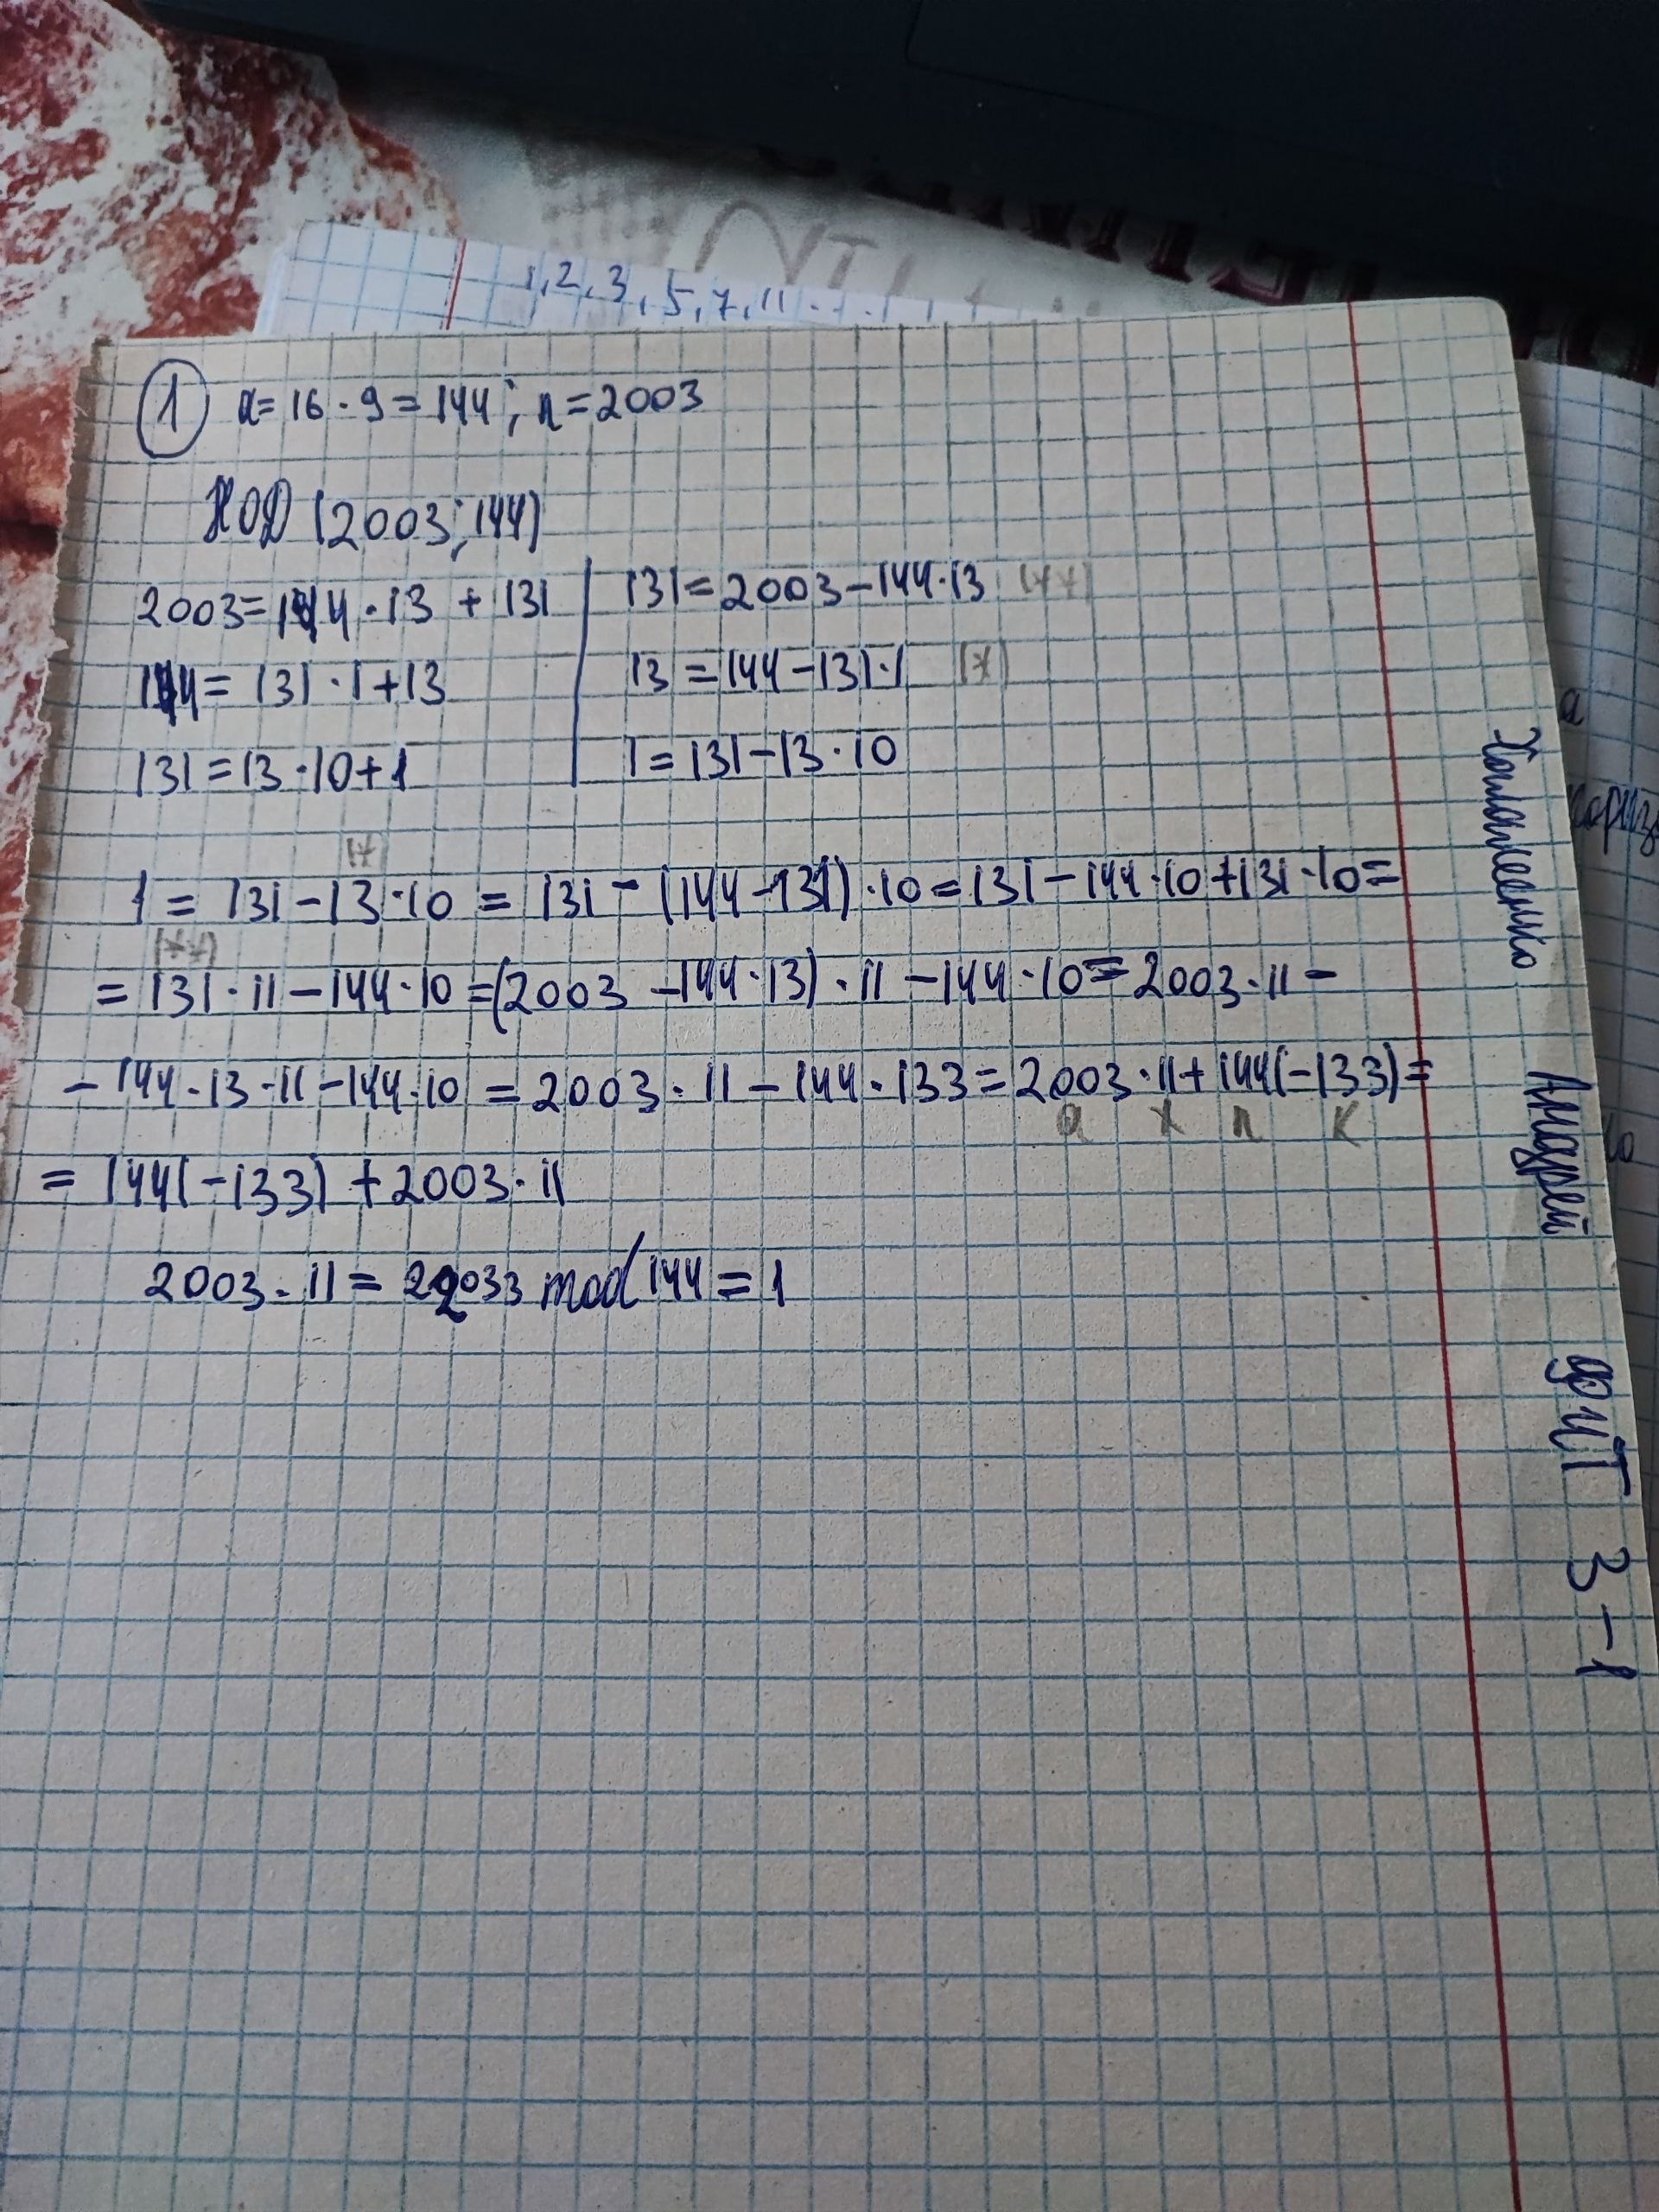 1, 2, 3, 5, 7, 11
① a = 16 · 9 = 144; n = 2003
НОД (2003; 144)
2003 = 144 · 13 + 131
144 = 131 · 1 + 13
131 = 13 · 10 + 1
131 = 2003 - 144 · 13 (**)
13 = 144 - 131 · 1 (*)
1 = 131 - 13 · 10
(*)
1 = 131 - 13 · 10 = 131 - (144 - 131) · 10 = 131 - 144 · 10 + 131 · 10 =
(**)
= 131 · 11 - 144 · 10 = (2003 - 144 · 13) · 11 - 144 · 10 = 2003 · 11 -
- 144 · 13 · 11 - 144 · 10 = 2003 · 11 - 144 · 133 = 2003 · 11 + 144(-133) =
a x n k
= 144(-133) + 2003 · 11
2003 · 11 = 22033 mod 144 = 1
Андрей ФИТ 3-1